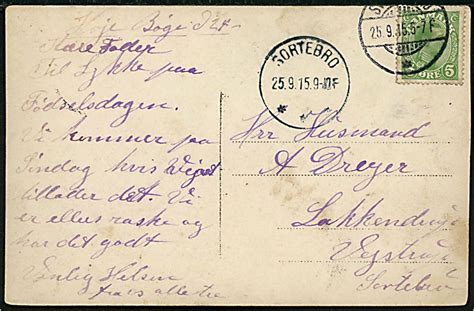 Høje Bøge 24
Kære Fader
Til Lykke paa
Fødselsdagen.
Vi kommer paa
Søndag hvis Vejret
tillader det. Vi
er ellers raske og
har det godt
Venlig Hilsen
fra os alle tre
SORTEBRO
25.9.15.9-12F
25.9.15.6-7F
ØRE 5
Hrr Husmand
A Dreyer
Lakkendrup
Vejstrup
Sortebro